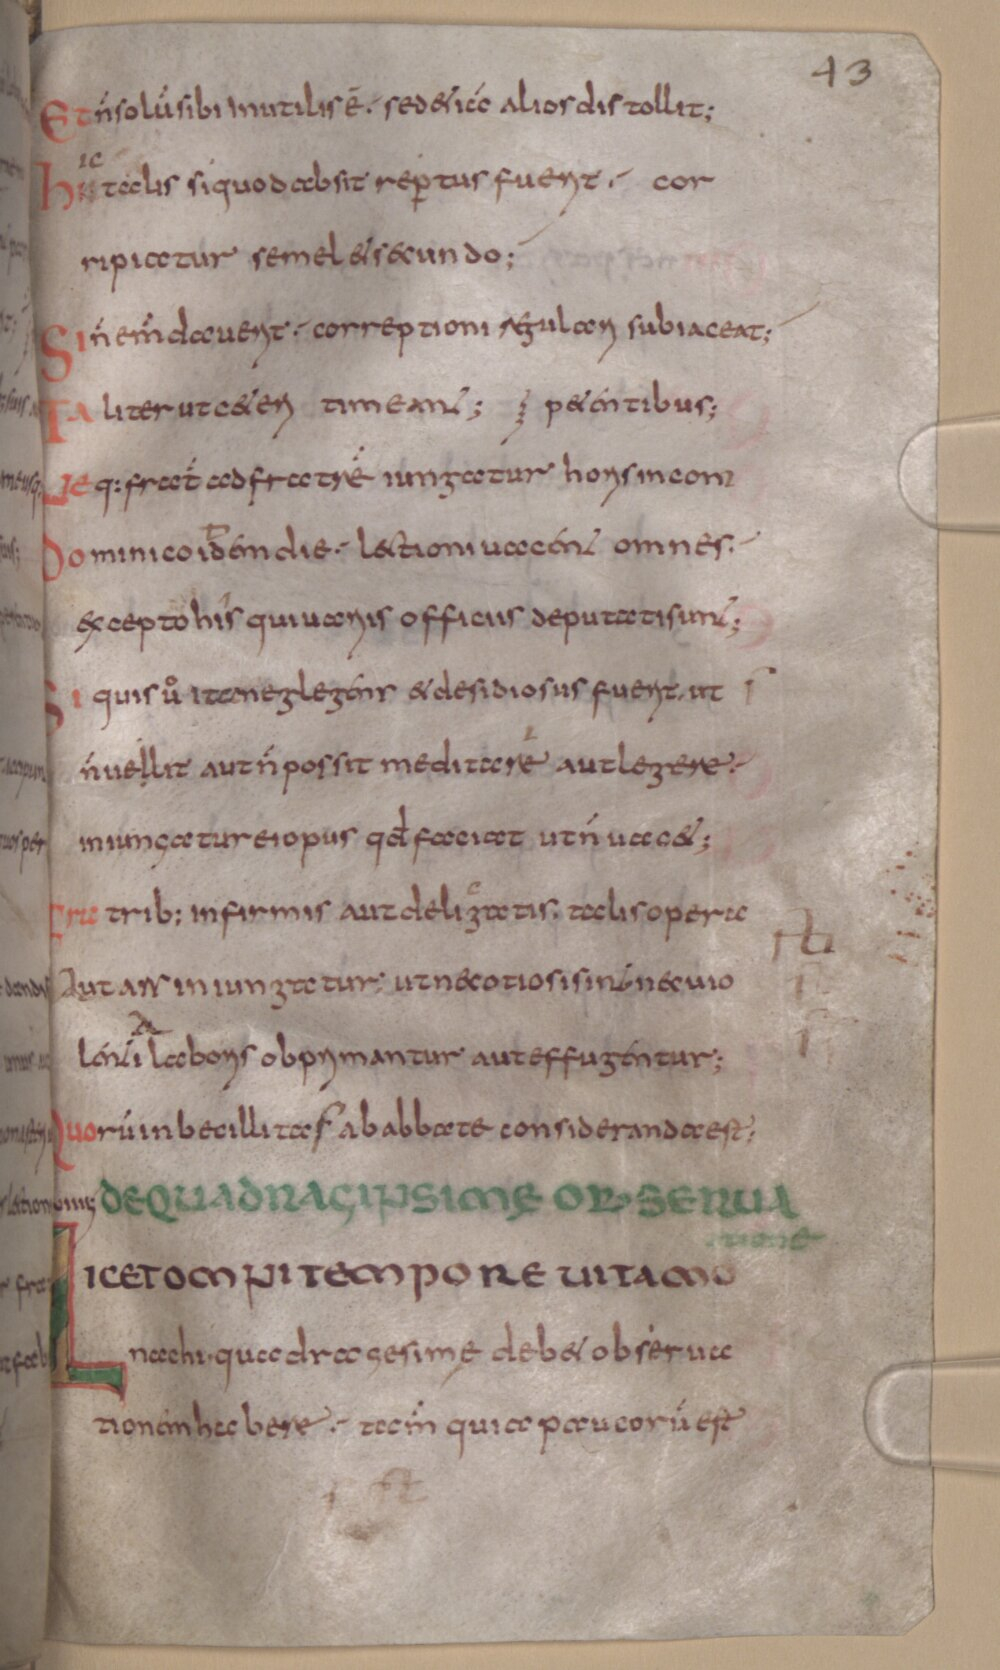 43
Et ń solū sibi inutilis ē. sed etiā alios distollit;
hic talis si quod absit repertus fuerit. cor
ripiatur semel et secundo;
Si ń em̄daverit. correptioni regulari subiaceat;
Taliter ut ceteri timeant;
Neq: frat̄ ad fratrē iungatur horis incom
petentibus;
Dominico idem die. lectioni vacent omnes.
excepto his qui variis officiis deputati sunt;
Si quis ů ita neglegens et desidiosus fuerit. ut
ń vellit aut ń possit meditare aut legere.
iniungatur ei opus qđ faciat ut ń vacet;
Fratrib; infirmis aut deligatis. talis opera
Aut ars iniungatur; ut nec otiosi sint. nec vio
lentia laboris obprimantur aut effugentur;
Quorū inbecillitas ab abbate consideranda est;
DE QUADRAGISSIME OBSERUA
tione
LICET OMNI TEMPORE UITA MO
nachi. quadragesime debet observa
tionem habere. tam̄ quia paucorū est